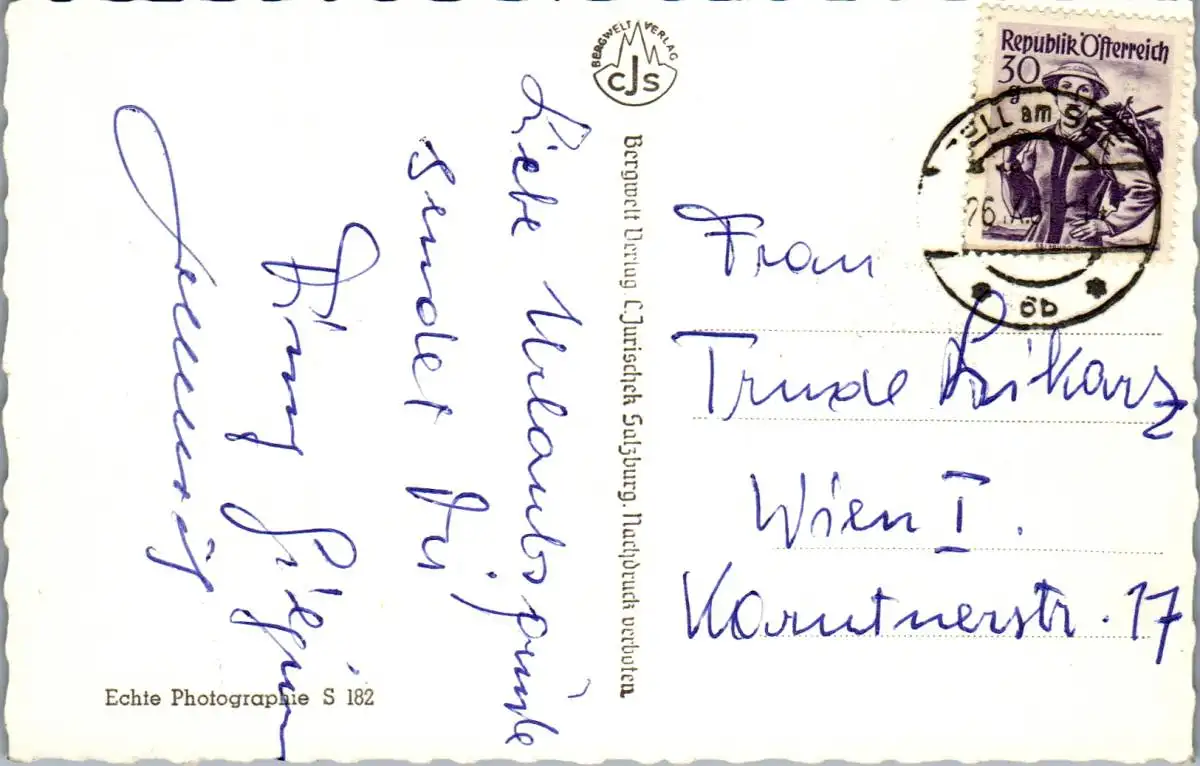 BERGWELT VERLAG
CJS
Republik Österreich
30
g
ZELL am SEE
26.
öb
Liebe Urlaubsgrüße
sendet Dir
Frau
Trude
Wien I.
Kärntnerstr. 17
Bergwelt Verlag C. Jurischek Salzburg. Nachdruck verboten
Echte Photographie S 182